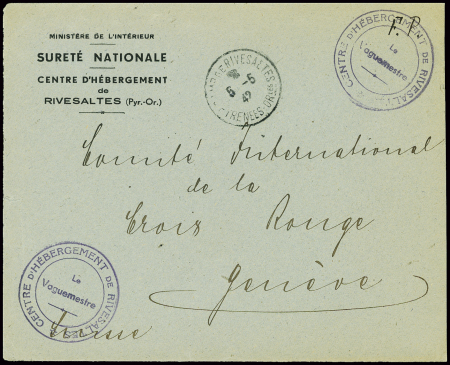 MINISTÈRE DE L'INTÉRIEUR
SURETÉ NATIONALE
CENTRE D'HÉBERGEMENT
de
RIVESALTES (Pyr.-Or.)
RIVESALTES
5 -5
42
PYRÉNÉES-ORles
F. P.
CENTRE D'HÉBERGEMENT DE RIVESALTES
Le
Vaguemestre
Comité International
de la
Croix Rouge
Genève
Suisse
CENTRE D'HÉBERGEMENT DE RIVESALTES
Le
Vaguemestre